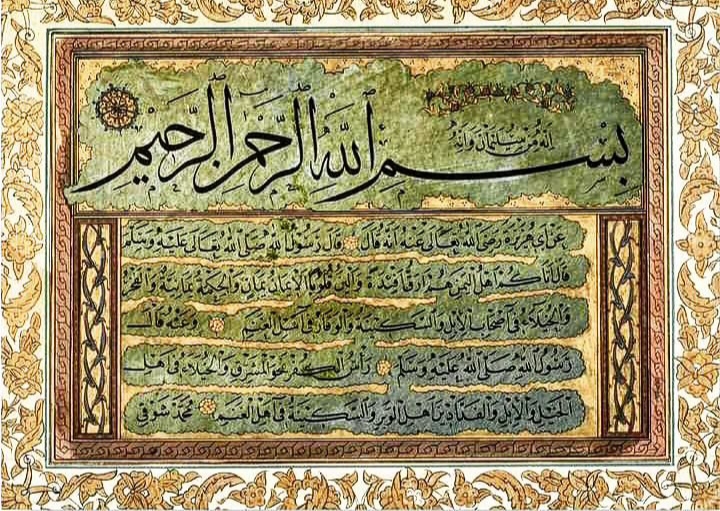 إنه من سليمان وإنه
بسم الله الرحمن الرحيم
عن أبي هريرة رضي الله تعالى عنه أنه قال قال رسول الله صلى الله تعالى عليه وسلم
قال أتاكم أهل اليمن هم أرق أفئدة وألين قلوبا الإيمان يمان والحكمة يمانية والفخر
والخيلاء في أصحاب الإبل والسكينة والوقار في أهل الغنم وعنه قال
رسول الله صلى الله عليه وسلم رأس الكفر نحو المشرق والخيلاء في أهل
الخيل والإبل والفدادين أهل الوبر والسكينة في أهل الغنم محمد شوقي